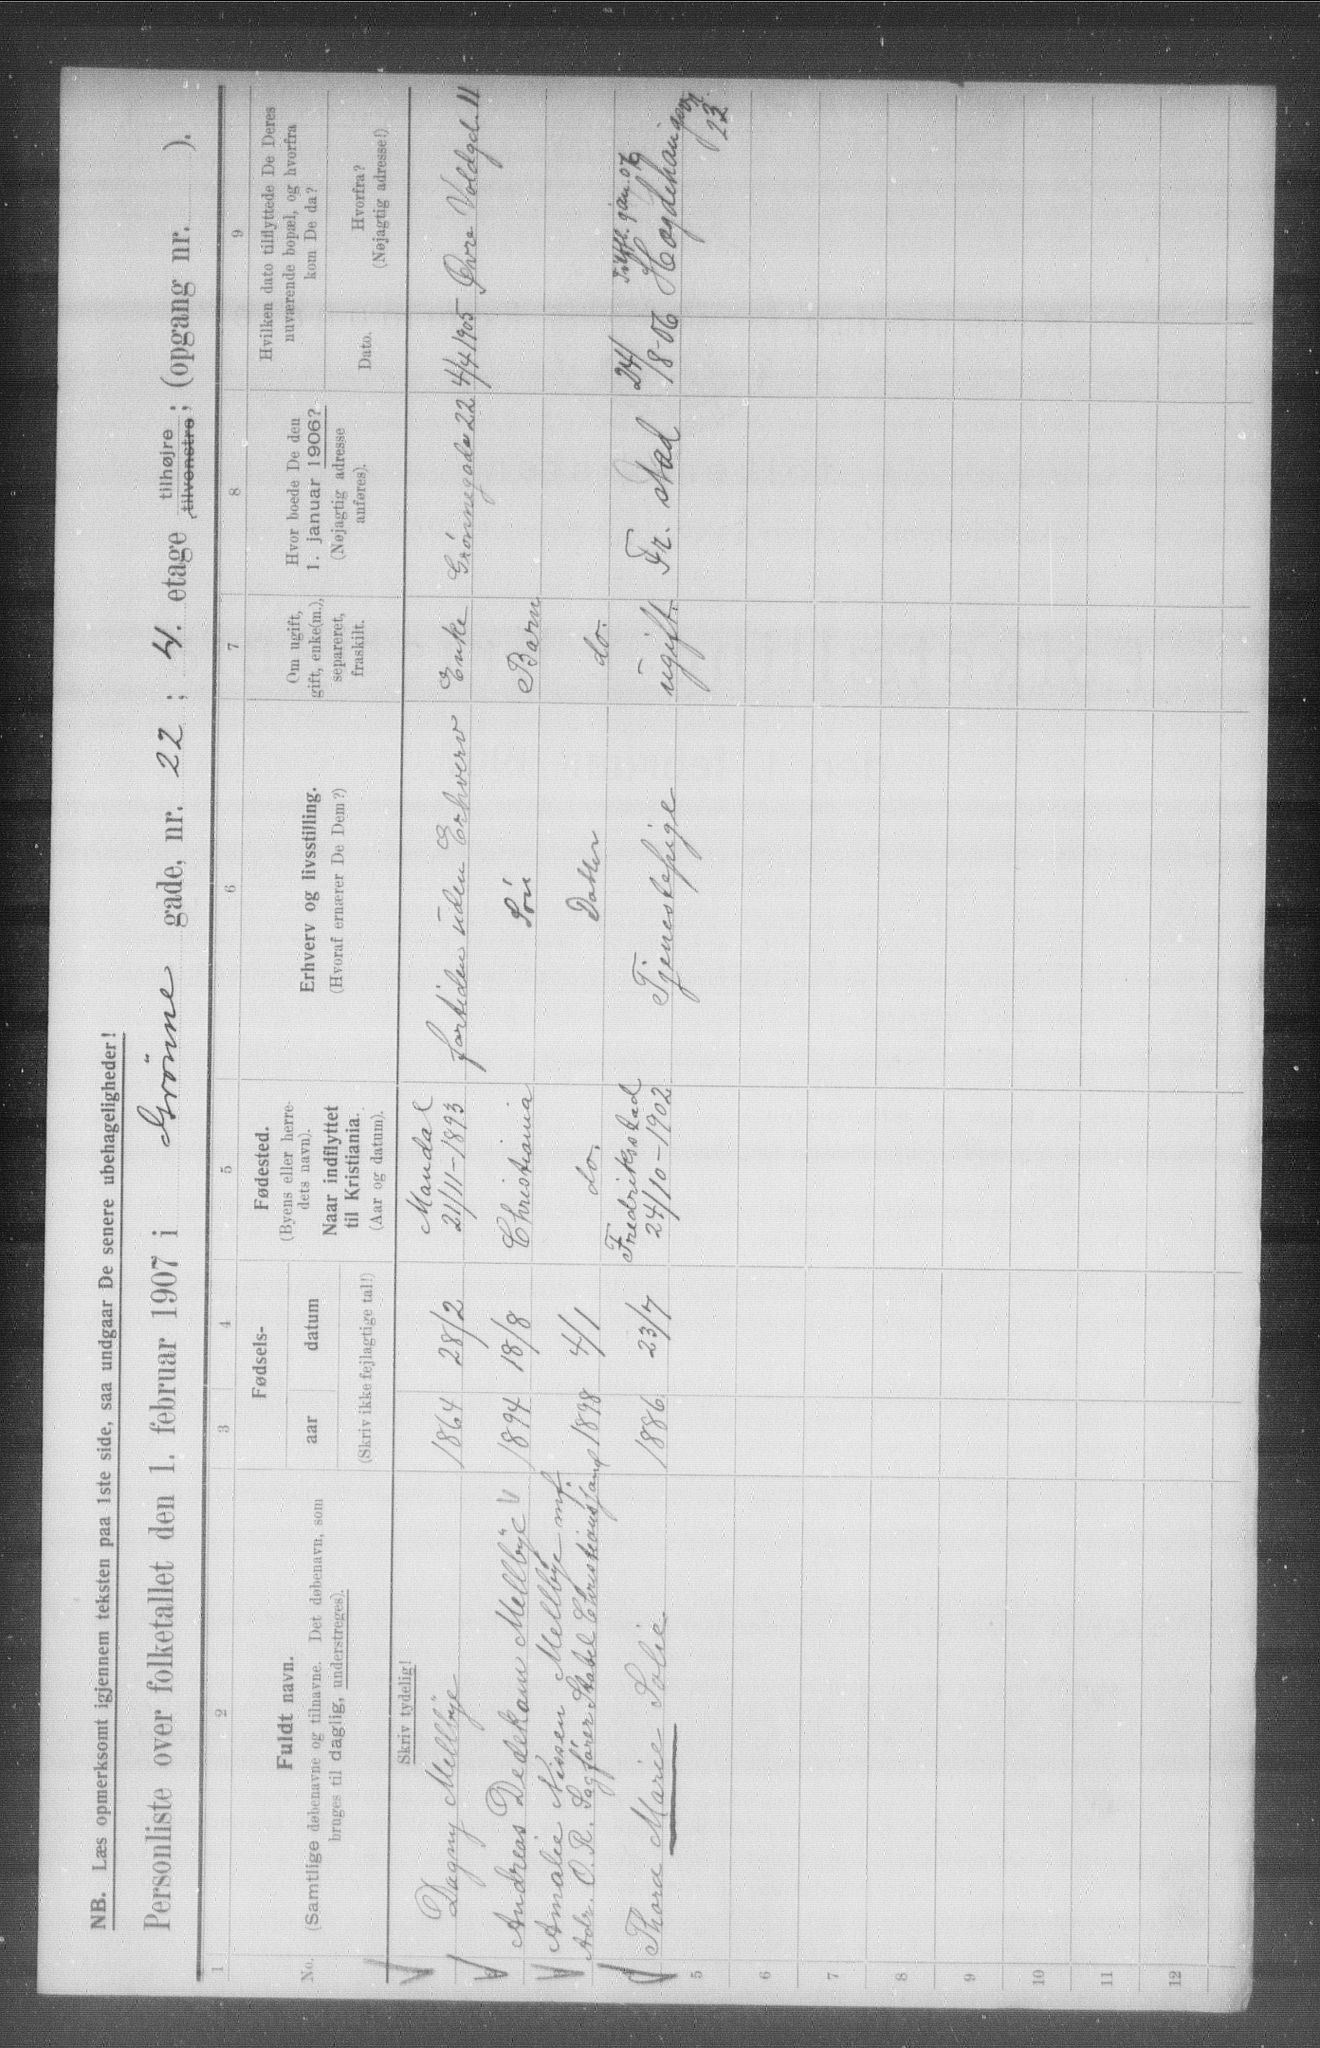 NB. Læs opmerksomt igjennem teksten paa 1ste side, saa undgaar De senere ubehageligheder!
Personliste over folketallet den 1. februar 1907 i Grönne gade, nr. 22 ; 4. etage tilhøjre tilvenstre; (opgang nr. ).
1 2 3 4 5 6 7 8 9
No.
Fuldt navn.
(Samtlige døbenavne og tilnavne. Det døbenavn, som
bruges til daglig, understreges).
Fødsels-
aar datum
(Skriv ikke fejlagtige tal!)
Fødested.
(Byens eller herre-
dets navn).
Naar indflyttet
til Kristiania.
(Aar og datum).
Erhverv og livsstilling.
(Hvoraf ernærer De Dem?)
Om ugift,
gift, enke(m.),
separeret,
fraskilt.
Hvor boede De den
1. januar 1906?
(Nøjagtig adresse
anføres).
Hvilken dato tilflyttede De Deres
nuværende bopæl, og hvorfra
kom De da?
Dato.
Hvorfra?
(Nøjagtig adresse!)
Skriv tydelig!
Dagny Mellbÿe 1864 28/2 Mandal
21/11-1893 fortiden uden Erhverv Enke Grönnegade 22 4/4 1905 Øvre Voldgd. 11
Andreas Dedekam Mellbÿe 1894 18/8 Christiania Sön Barn
Amalie Nissen Mellbÿe
Adr. O.R. Sagförer Stabel Christianssand 1898 4/1 do. Datter do.
Thora Marie Solie 1886 23/7 Fredriksstad
24/10-1902 Tjenestepige ugift. Fr.stad 24/8-06 Tilfl. jan 07
Hægdehaugsv
23
5
6
7
8
9
10
11
12